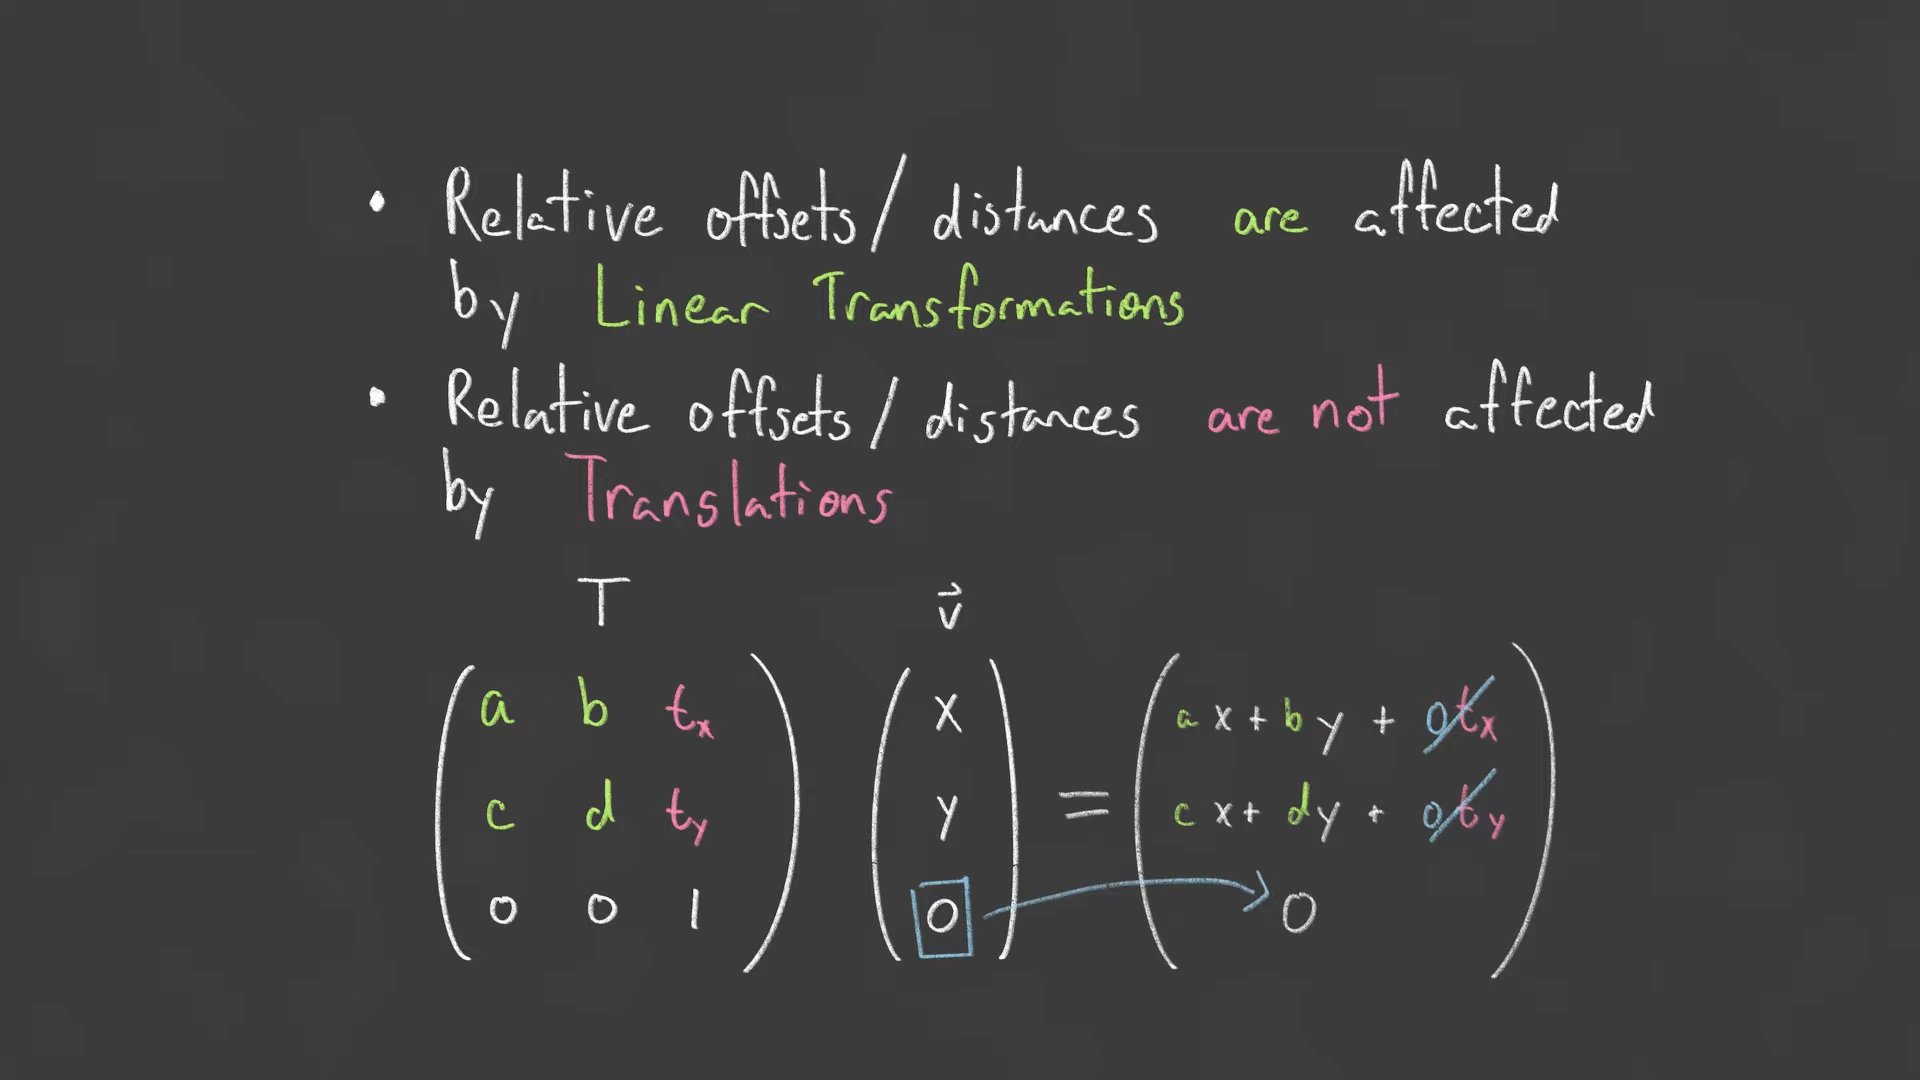 • Relative offsets/distances are affected
by Linear Transformations
• Relative offsets/distances are not affected
by Translations
T v⃗
a b tₓ x ax + by + 0tₓ
c d t_y y = cx + dy + 0t_y
0 0 1 0 0